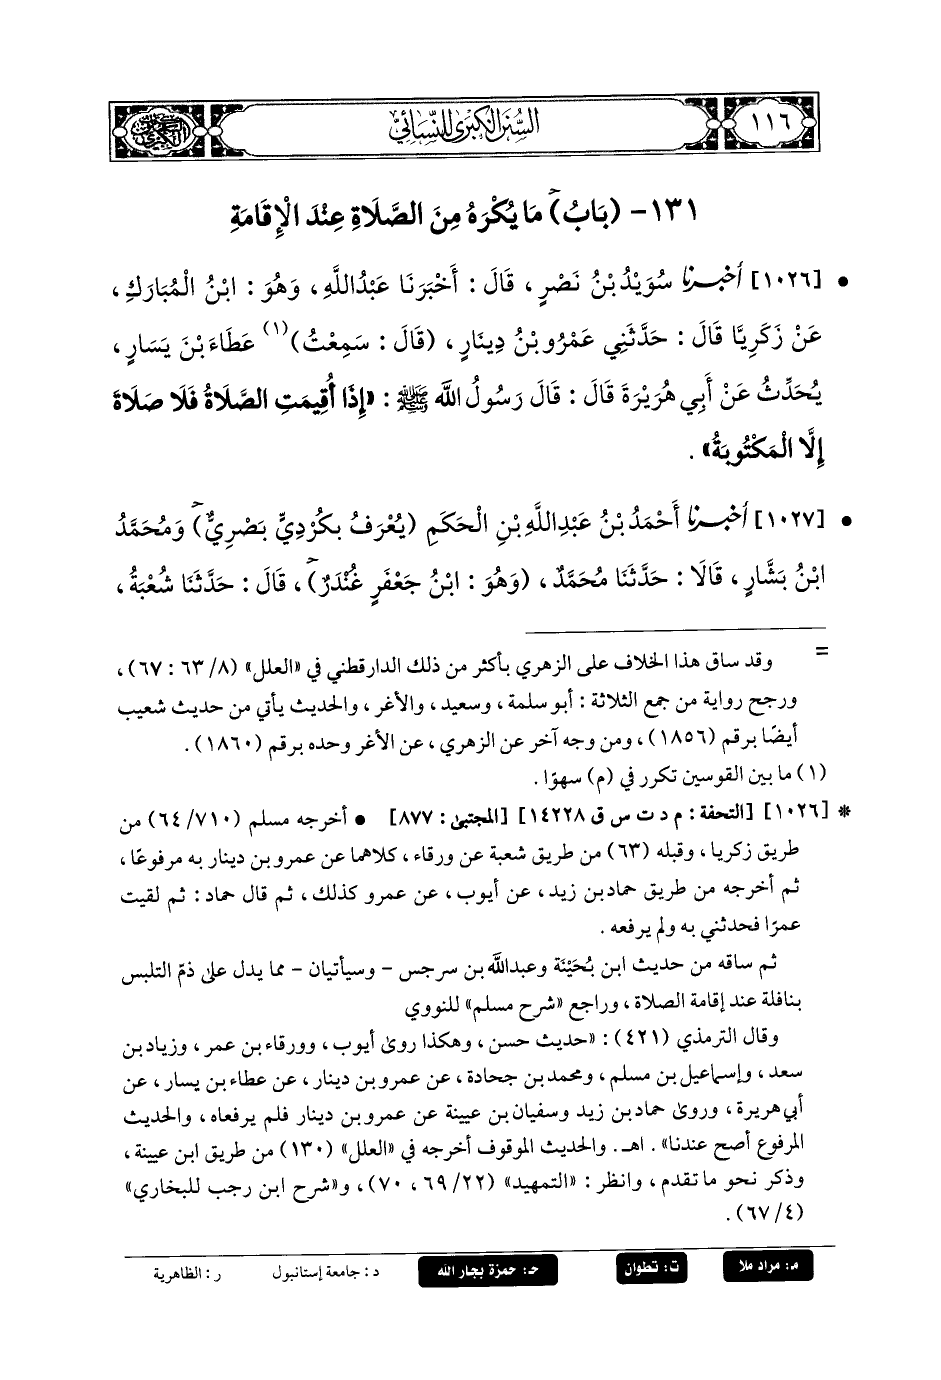 ١١٦
السُّنَنُ الْكِبْرَىٰ لِلنِّسَائِيِّ
١٣١- (بَابُ) مَا يُكْرَهُ مِنَ الصَّلَاةِ عِنْدَ الْإِقَامَةِ
• [١٠٢٦] أَخْبَرَنَا سُوَيْدُ بْنُ نَصْرٍ ، قَالَ : أَخْبَرَنَا عَبْدُاللَّهِ ، وَهُوَ : ابْنُ الْمُبَارَكِ ،
عَنْ زَكَرِيَّا قَالَ : حَدَّثَنِي عَمْرُو بْنُ دِينَارٍ ، (قَالَ : سَمِعْتُ)(١) عَطَاءَ بْنَ يَسَارٍ ،
يُحَدِّثُ عَنْ أَبِي هُرَيْرَةَ قَالَ : قَالَ رَسُولُ اللَّهِ ﷺ : «إِذَا أُقِيمَتِ الصَّلَاةُ فَلَا صَلَاةَ
إِلَّا الْمَكْتُوبَةُ» .
• [١٠٢٧] أَخْبَرَنَا أَحْمَدُ بْنُ عَبْدِاللَّهِ بْنِ الْحَكَمِ (يُعْرَفُ بِكُرْدِيٍّ بَصْرِيٌّ) وَمُحَمَّدُ
ابْنُ بَشَّارٍ ، قَالَا : حَدَّثَنَا مُحَمَّدٌ ، (وَهُوَ : ابْنُ جَعْفَرٍ غُنْدَرٌ) ، قَالَ : حَدَّثَنَا شُعْبَةُ ،
= وقد ساق هذا الخلاف على الزهري بأكثر من ذلك الدارقطني في «العلل» (٨/ ٦٣ : ٦٧) ،
ورجح رواية من جمع الثلاثة : أبو سلمة ، وسعيد ، والأغر ، والحديث يأتي من حديث شعيب
أيضًا برقم (١٨٥٦) ، ومن وجه آخر عن الزهري ، عن الأغر وحده برقم (١٨٦٠) .
(١) ما بين القوسين تكرر في (م) سهوًا .
* [١٠٢٦] [التحفة : م د ت س ق ١٤٢٢٨] [المجتبى : ٨٧٧] • أخرجه مسلم (٦٤/٧١٠) من
طريق زكريا ، وقبله (٦٣) من طريق شعبة عن ورقاء ، كلاهما عن عمرو بن دينار به مرفوعًا ،
ثم أخرجه من طريق حماد بن زيد ، عن أيوب ، عن عمرو كذلك ، ثم قال حماد : ثم لقيت
عمرًا فحدثني به ولم يرفعه .
ثم ساقه من حديث ابن بُحَيْنَة وعبدالله بن سرجس - وسيأتيان - مما يدل على ذمّ التلبس
بنافلة عند إقامة الصلاة ، وراجع «شرح مسلم» للنووي
وقال الترمذي (٤٢١) : «حديث حسن ، وهكذا روى أيوب ، وورقاء بن عمر ، وزياد بن
سعد ، وإسماعيل بن مسلم ، ومحمد بن جحادة ، عن عمرو بن دينار ، عن عطاء بن يسار ، عن
أبي هريرة ، وروى حماد بن زيد وسفيان بن عيينة عن عمرو بن دينار فلم يرفعاه ، والحديث
المرفوع أصح عندنا» . اهـ. والحديث الموقوف أخرجه في «العلل» (١٣٠) من طريق ابن عيينة ،
وذكر نحو ما تقدم ، وانظر : «التمهيد» (٢٢/ ٦٩ ، ٧٠) ، و«شرح ابن رجب للبخاري»
(٤/ ٦٧) .
م: مراد ملا ت: تطوان حـ: حمزة بجار الله د: جامعة إستانبول ر: الظاهرية